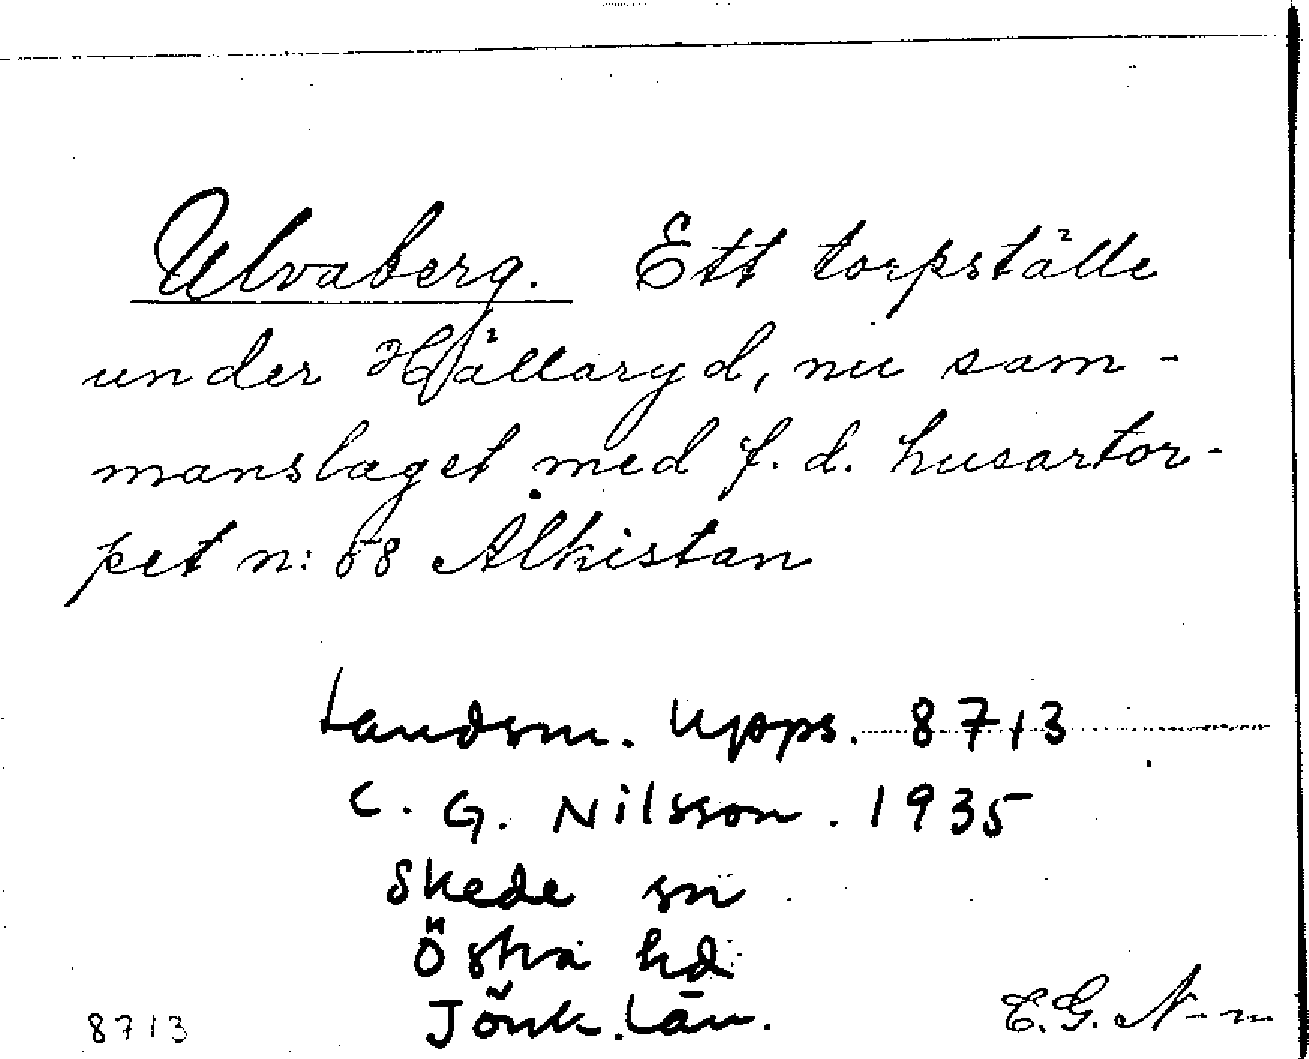 Ulvaberg. Ett torpställe
under Hjällaryd, nu sam-
manslaget med f. d. husartor-
pet n: 58 Ålkistan
Landsm. Upps. 8713
C. G. Nilsson. 1935
Skede sn
Östra hd
Jönk. Län.
8713 C. G. N-n